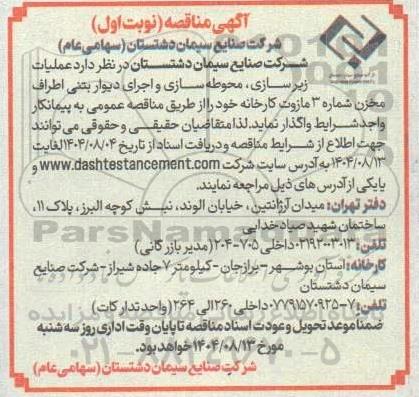 آگهی مناقصه (نوبت اول)
شرکت صنایع سیمان دشتستان (سهامی عام)
شرکت صنایع سیمان دشتستان در نظر دارد عملیات
زیرسازی، محوطه سازی و اجرای دیوار بتنی اطراف
مخزن شماره ۳ مازوت کارخانه خود را از طریق مناقصه عمومی به پیمانکار
واجد شرایط واگذار نماید. لذا متقاضیان حقیقی و حقوقی می توانند
جهت اطلاع از شرایط مناقصه و دریافت اسناد از تاریخ ۱۴۰۴/۰۸/۰۴ لغایت
۱۴۰۴/۰۸/۱۳ به آدرس سایت شرکت www.dashtestancement.com و
یا یکی از آدرس های ذیل مراجعه نمایند.
دفتر تهران: میدان آرژانتین، خیابان الوند، نبش کوچه البرز، پلاک ۱۱،
ساختمان شهید صیاد خدایی
تلفن: ۰۲۱۹۲۰۰۳۰۱۳ داخلی ۷۰۵-۲۰۴ (مدیر بازرگانی)
کارخانه: استان بوشهر - برازجان - کیلومتر ۷ جاده شیراز - شرکت صنایع
سیمان دشتستان
تلفن: ۷-۰۷۷۹۱۵۷۰۹۲۵ داخلی ۲۶۰ الی ۲۶۴ (واحد تدارکات)
ضمنا موعد تحویل و عودت اسناد مناقصه تا پایان وقت اداری روز سه شنبه
مورخ ۱۴۰۴/۰۸/۱۳ خواهد بود.
شرکت صنایع سیمان دشتستان (سهامی عام)